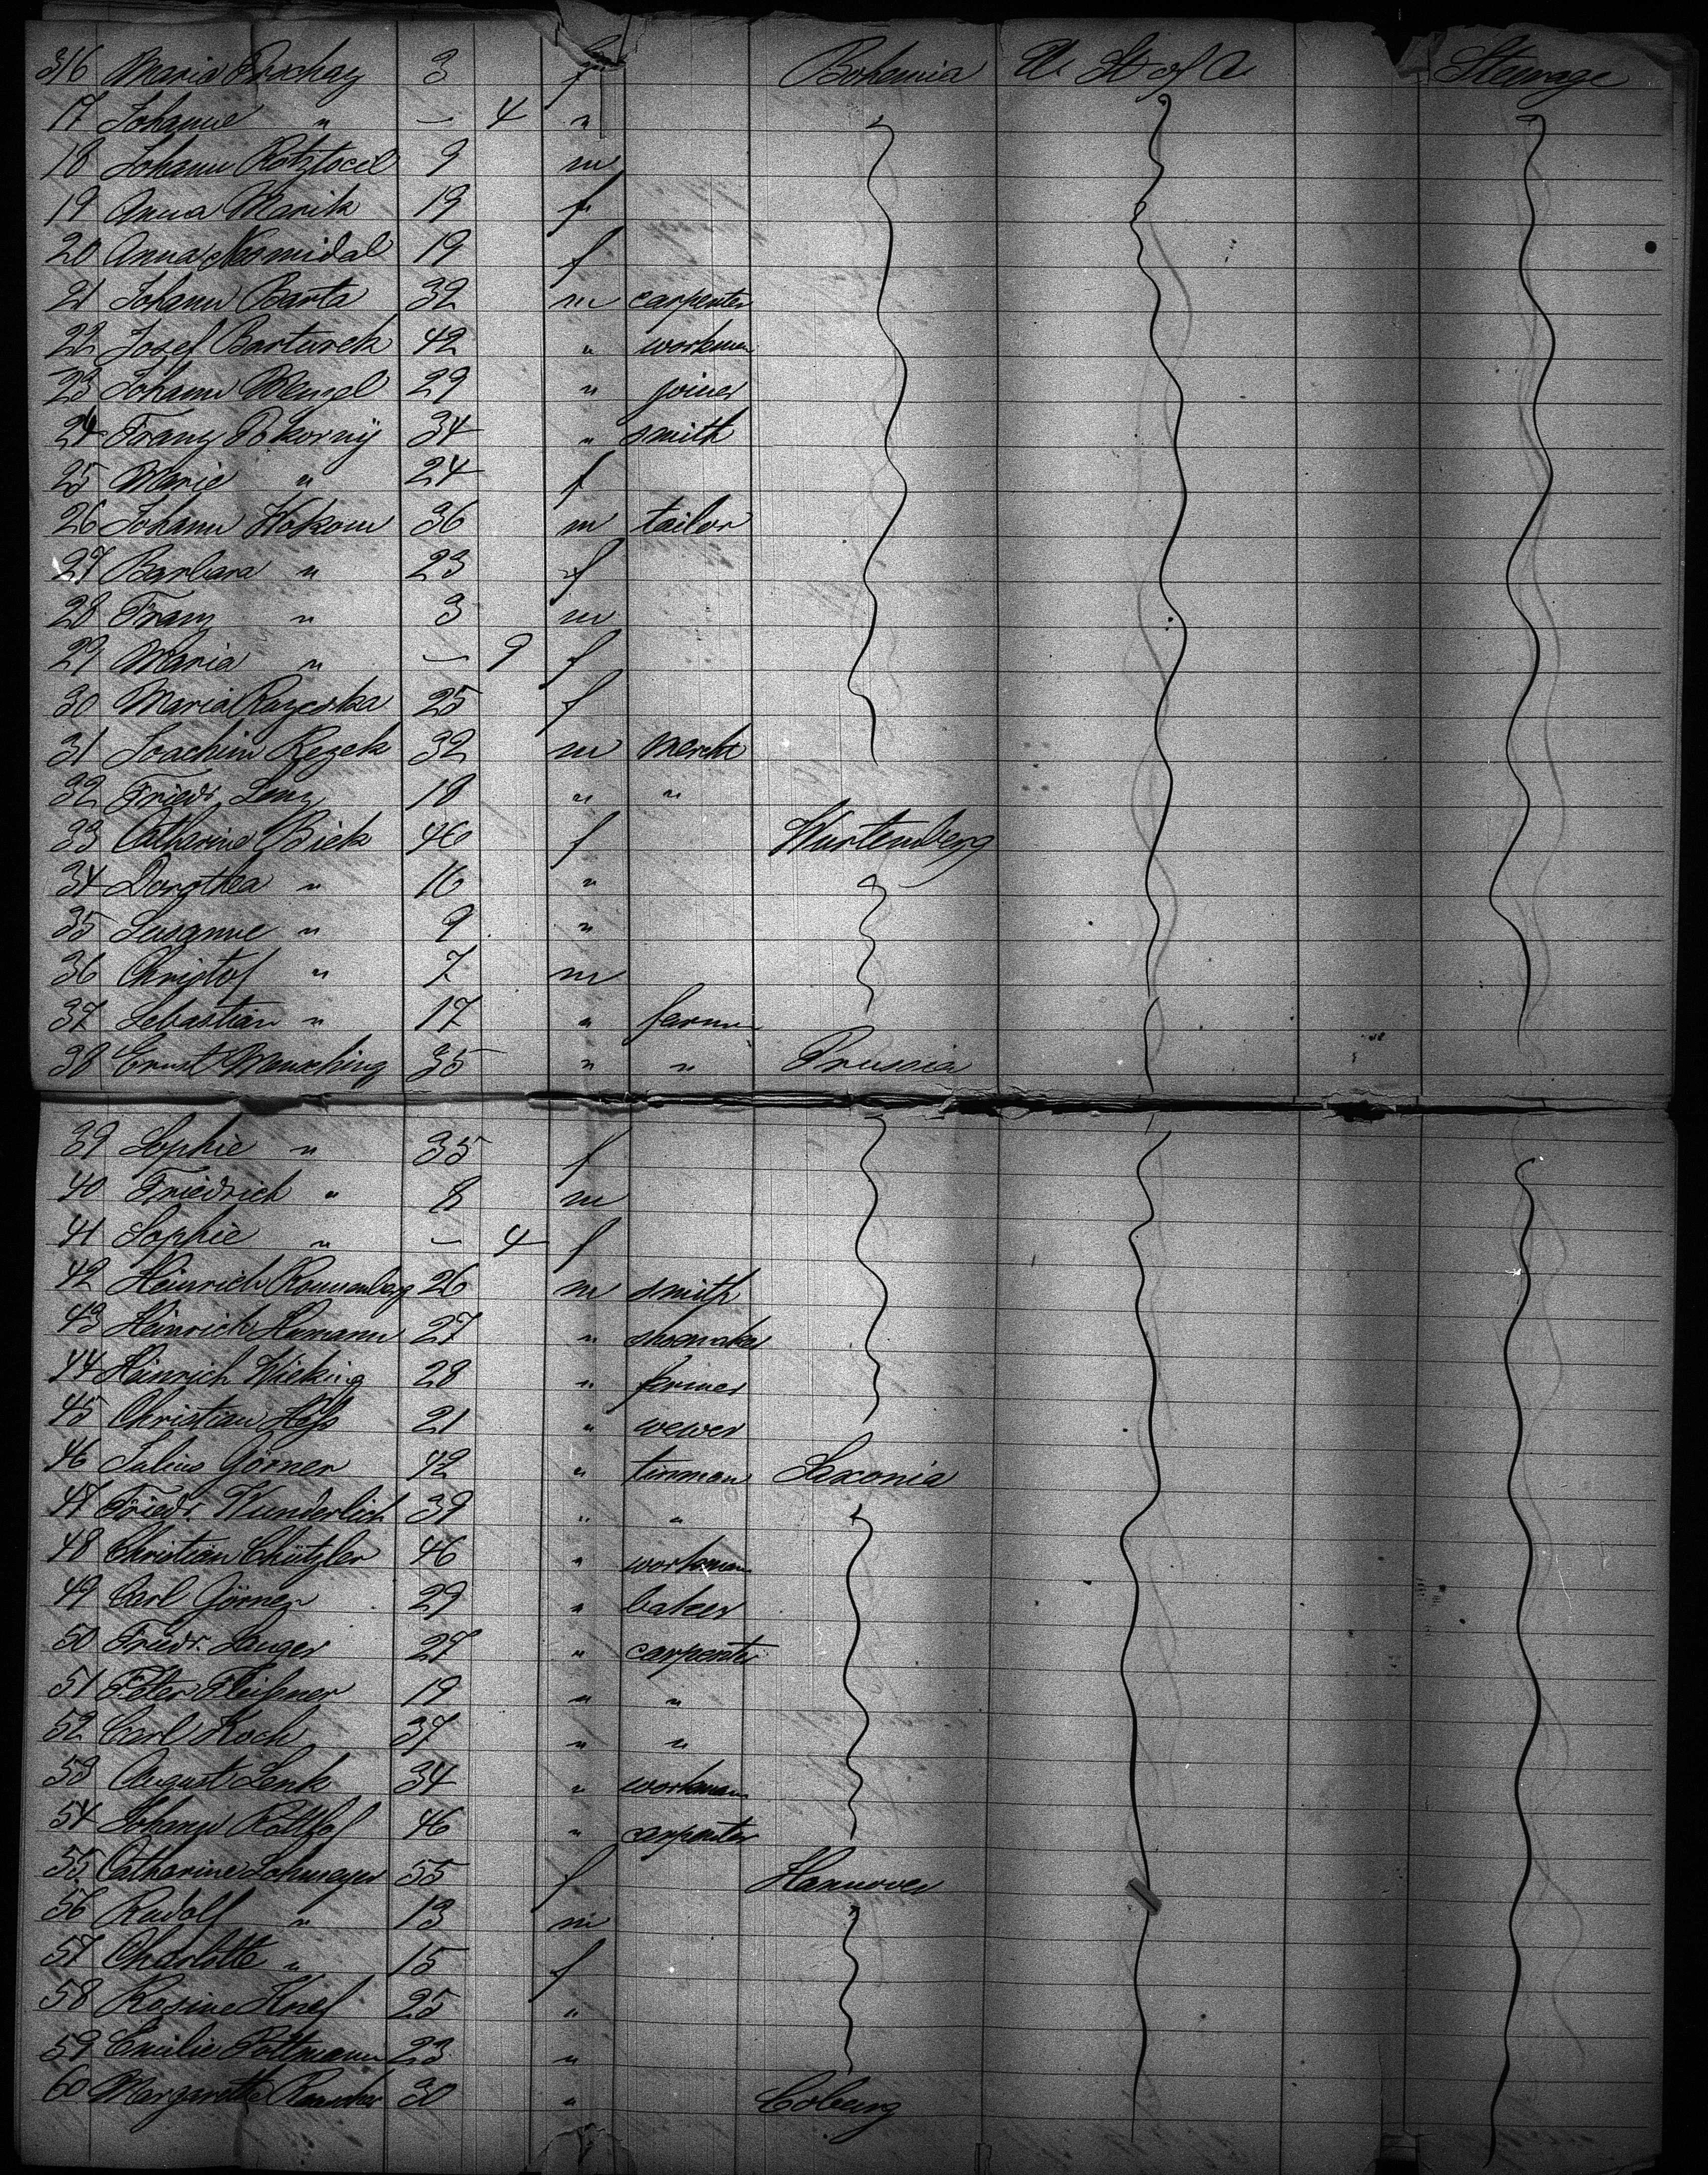 316 Maria 3 f Bohemia U. St of A. Steerage
17 Johanne " — 4 "
18 Johann 9 m
19 Anna Marik 19 f
20 Anna 19 f
21 Johann Barta 32 m carpenter
22 Josef Barturek 42 " workman
23 Johann Wenzel 29 " joiner
24 Franz Pokorny 34 " smith
25 Marie " 24 f
26 Johann Hokoun 36 m tailor
27 Barbara " 23 f
28 Franz " 3 m
29 Maria " — 9 f
30 Maria 25 f
31 Joachim Rezek 32 m mercht
32 Friedr. Lenz 18 " "
33 Catherine Biek 46 f Wurtemberg
34 Dorothea " 16 "
35 Susanne " 9 "
36 Christof " 7 m
37 Sebastian " 17 " farmer
38 Ernst Mensching 35 " " Prussia
39 Sophie " 35 f
40 Friedrich " 8 m
41 Sophie " — 4 f
42 Heinrich Ronnenberg 26 m smith
43 Heinrich Humann 27 " shoemaker
44 Heinrich Wieking 28 " farmer
45 Christian Heß 21 " wewer
46 Julius Görner 42 " tinman Saxonia
47 Friedr. Wunderlich 39 " "
48 Christian 46 " workman
49 Carl Görner 29 " baker
50 Friedr. Langer 27 " carpenter
51 Peter Fleißner 19 " "
52 Carl Koch 37 " "
53 August Lenk 34 " workman
54 Johann 46 " carpenter
55 Catharine Lohmeyer 55 f Hannover
56 Rudolf " 13 m
57 Charlotte " 15 f
58 Rosine Knef 25 "
59 Emilie Pottmann 23 "
60 Margarethe 30 " Coburg